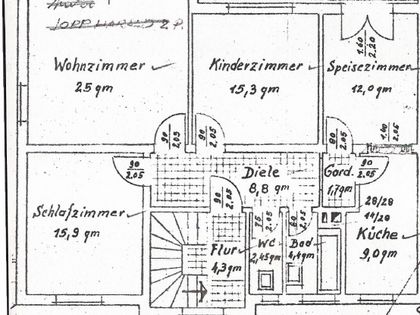 Wohnzimmer
25 qm
Kinderzimmer
15,3 qm
Speisezimmer
12,0 qm
1.60
2.20
90
2.05
90
2.05
80
2.05
1.00
2.05
90
2.05
Diele
8,8 qm
Gard.
1,7 qm
90
2.05
Schlafzimmer
15,9 qm
90
2.05
75
2.05
60
2.05
28/28
14/20
Küche
9,0 qm
Flur
4,3 qm
WC
2,45 qm
Bad
4,4 qm